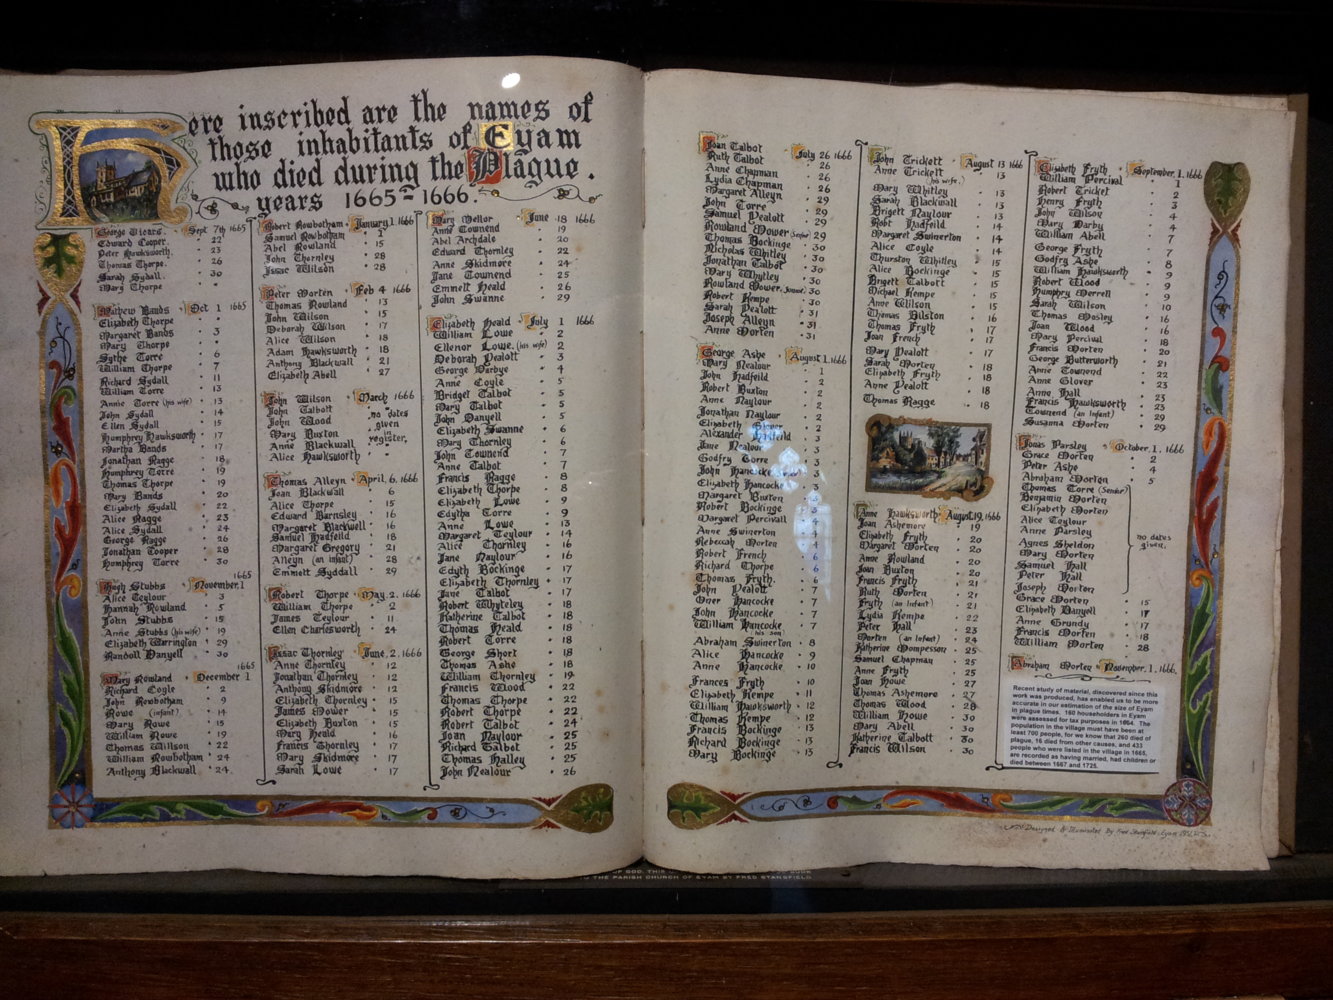 Here inscribed are the names of
those inhabitants of Eyam
who died during the Plague.
years 1665-1666.
George Vicars. Sept 7th 1665
Edward Cooper. 22
Peter Hawksworth. 23
Thomas Thorpe. 26
Sarah Sydall. 30
Mary Thorpe "
Mathew Bands Oct 1 1665
Elizabeth Thorpe "
Margaret Bands 3
Mary Thorpe "
Sythe Torre 6
William Thorpe 7
Richard Sydall 11
William Torre 13
Annie Torre (his wife) 13
John Sydall 14
Ellen Sydall 15
Humphrey Hawksworth 17
Martha Bands 17
Jonathan Ragge 18
Humphrey Torre 19
Thomas Thorpe 19
Mary Bands 20
Elizabeth Sydall 22
Alice Ragge 23
Alice Sydall 24
George Ragge 26
Jonathan Cooper 28
Humphrey Torre 30
1665
Hugh Stubbs November, 1
Alice Teylour 3
Hannah Rowland 5
John Stubbs 15
Anne Stubbs (his wife) 19
Elizabeth Warrington 29
Randoll Danyell 30
1665
Mary Rowland December 1
Richard Coyle 2
John Rowbotham 9
Rowe (infant) 14
Mary Rowe 15
William Rowe 19
Thomas Willson 22
William Rowbotham 24
Anthony Blackwall 24
Robert Rowbotham January, 1. 1666
Samuel Rowbotham 1
Abel Rowland 15
John Thornley 28
Isaac Wilson 28
Peter Morten Feb 4 1666
Thomas Rowland 13
John Wilson 15
Deborah Wilson 17
Alice Wilson 18
Adam Hawksworth 18
Anthony Blackwall 21
Elizabeth Abell 27
John Wilson March 1666
John Talbott no dates
John Wood given
Mary Buxton in
Anne Blackwall register.
Alice Hawksworth "
Thomas Alleyn April. 6. 1666
Joan Blackwall 6
Alice Thorpe 15
Edward Barnsley 16
Margaret Blackwell 16
Samuel Hadfeild 18
Margaret Gregory 21
Alleyn (an infant) 28
Emmett Syddall 29
Robert Thorpe May. 2. 1666
William Thorpe 2
James Teylour 11
Ellen Charlesworth 24
Isaac Thornley June. 2. 1666
Anne Thornley 12
Jonathan Thornley 12
Anthony Skidmore 12
Elizabeth Thornley 15
James Mower 15
Elizabeth Buxton 15
Mary Heald 16
Francis Thornley 17
Mary Skidmore 17
Sarah Lowe 17
Mary Mellor June 18 1666
Anne Townend 19
Abel Archdale 20
Edward Thornley 22
Anne Skidmore 24
Jane Townend 25
Emmett Heald 26
John Swanne 29
Elizabeth Heald July 1 1666
William Lowe 2
Ellenor Lowe. (his wife) 2
Deborah Pealott 3
George Darbye 4
Anne Coyle 5
Bridget Talbot 5
Mary Talbot 5
John Danyell 5
Elizabeth Swanne 6
Mary Thornley 6
John Townend 7
Anne Talbot 7
Francis Ragge 8
Elizabeth Thorpe 8
Elizabeth Lowe 9
Edytha Torre 9
Anne Lowe 13
Margaret Teylour 14
Alice Thornley 16
Jane Naylour 16
Edyth Bockinge 17
Elizabeth Thornley 17
Jane Talbot 17
Robert Whyteley 18
Katherine Talbot 18
Thomas Heald 18
Robert Torre 18
George Short 18
Thomas Ashe 18
William Thornley 19
Francis Wood 22
Thomas Thorpe 22
Robert Thorpe 22
Robert Talbot 24
Joan Naylour 25
Richard Talbot 25
Thomas Halley 25
John Nealour 26
Joan Talbot July 26 1666
Ruth Talbot 26
Anne Chapman 26
Lydia Chapman 26
Margaret Alleyn 29
John Torre 29
Samuel Pealott 29
Rowland Mower (Senior) 29
Thomas Bockinge 30
Nicholas Whitley 30
Jonathan Talbot 30
Mary Whytley 30
Rowland Mower. Junior 30
Robert Kempe 30
Sarah Pealott 31
Joseph Alleyn 31
Anne Morten 31
George Ashe August 1. 1666
Mary Nealour 1
John Hadfeild 2
Robert Buxton 2
Anne Naylour 2
Jonathan Naylour 2
Elizabeth Glover 2
Alexander Hadfeild 3
Jane Nealour 3
Godfry Torre 3
John Hancocke 3
Elizabeth Hancocke 3
Margaret Buxton 3
Robert Bockinge 3
Margaret Percivall 4
Anne Swinerton 4
Rebeccah Morten 4
Robert French 6
Richard Thorpe 6
Thomas Fryth 6
John Pealott 7
Oner Hancocke 7
John Hancocke 7
William Hancocke 7
his son
Abraham Swinerton 8
Alice Hancocke 9
Anne Hancocke 10
Frances Fryth 10
Elizabeth Kempe 11
William Hawksworth 12
Thomas Kempe 12
Francis Bockinge 13
Richard Bockinge 13
Mary Bockinge 13
John Trickett August 13 1666
Anne Trickett 13
(his wife.)
Mary Whitley 13
Sarah Blackwall 13
Brigett Naylour 13
Robt Hadfeild 14
Margaret Swinerton 14
Alice Coyle 14
Thurston Whitley 15
Alice Bockinge 15
Brigett Talbott 15
Michael Kempe 15
Anne Wilson 15
Thomas Bilston 16
Thomas Fryth 17
Joan French 17
Mary Pealott 17
Sarah Morten 18
Elizabeth Fryth 18
Anne Pealott 18
Thomas Ragge 18
Anne Hawksworth August. 19. 1666
Joan Ashemore 19
Elizabeth Fryth 20
Margaret Morten 20
Anne Rowland 20
Joan Buxton 20
Francis Fryth 21
Ruth Morten 21
Fryth (an Infant) 21
Lydia Kempe 22
Peter Hall 23
Morten (an Infant) 24
Katherine Mompesson 25
Samuel Chapman 25
Anne Fryth 25
Joan Howe 27
Thomas Ashemore 27
Thomas Wood 28
William Howe 30
Mary Abell 30
Katherine Talbott 30
Francis Wilson 30
Elizabeth Fryth September. 1. 1666
William Percival 1
Robert Tricket 2
Henry Fryth 3
John Wilson 4
Mary Darby 4
William Abell 7
George Fryth 7
Godfry Ashe 8
William Hawksworth 9
Robert Wood 9
Humphry Merrell 9
Sarah Wilson 10
Thomas Mosley 16
Joan Wood 16
Mary Percival 18
Francis Morten 20
George Butterworth 21
Anne Townend 22
Anne Glover 23
Anne Hall 23
Francis Hawksworth 23
Townend (an Infant) 29
Susanna Morten 29
Jonas Parsley October. 1. 1666
Grace Morten 2
Peter Ashe 4
Abraham Morten 5
Thomas Torre (Senior)
Benjamin Morten
Elizabeth Morten
Alice Teylour
Anne Parsley
Agnes Sheldon no dates
Mary Morten given.
Samuel Hall
Peter Hall
Joseph Morten
Grace Morten 15
Elizabeth Danyell 17
Anne Grundy 17
Francis Morten 18
William Morten 28
Abraham Morten November. 1. 1666.
Recent study of material, discovered since this
work was produced, has enabled us to be more
accurate in our estimation of the size of Eyam
in plague times. 160 householders in Eyam
were assessed for tax purposes in 1664. The
population in the village must have been at
least 700 people, for we know that 260 died of
plague, 16 died from other causes, and 433
people who were listed in the village in 1665,
are recorded as having married, had children or
died between 1667 and 1725.
Designed & Illuminated by Fred Stansfield. Eyam
OF GOD. THIS
THE PARISH CHURCH OF EYAM BY FRED STANSFIELD